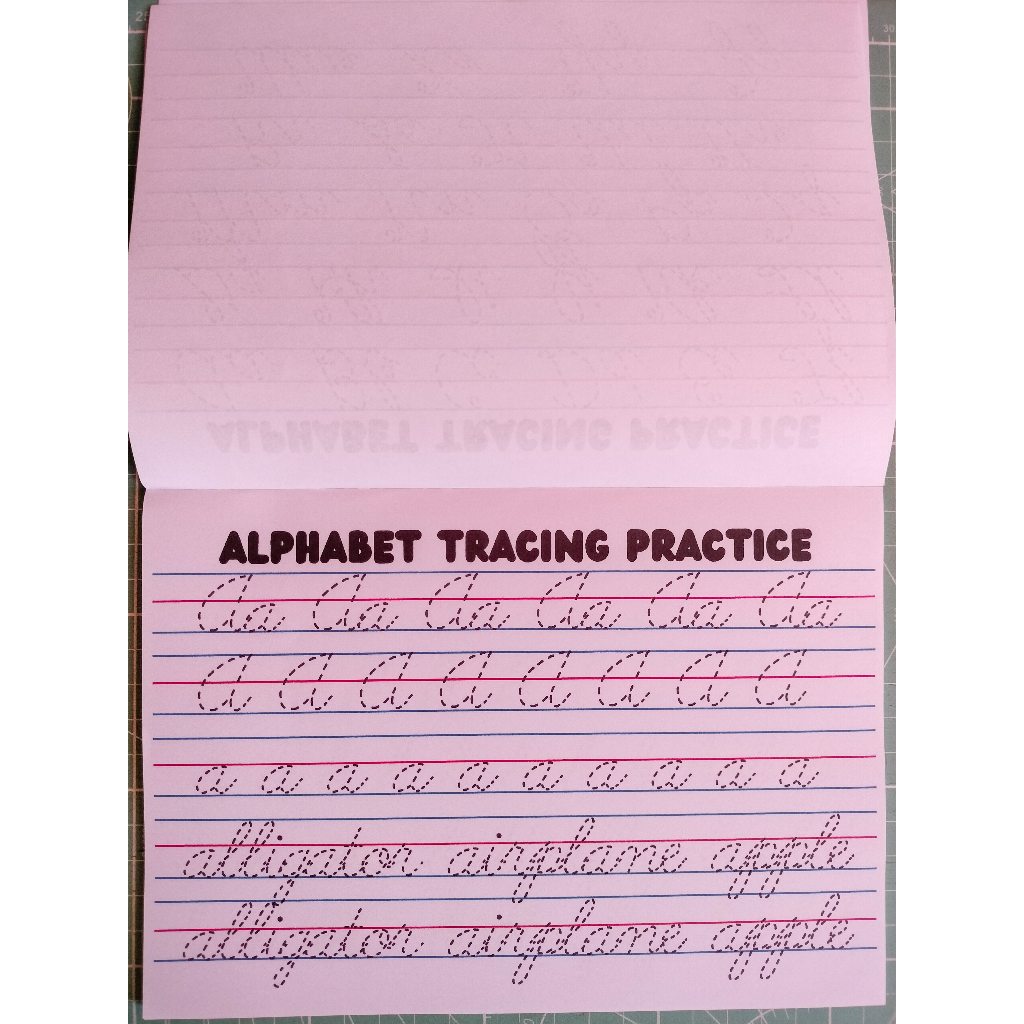 ALPHABET TRACING PRACTICE
Aa Aa Aa Aa Aa Aa
A A A A A A A A
a a a a a a a a a a
alligator airplane apple
alligator airplane apple